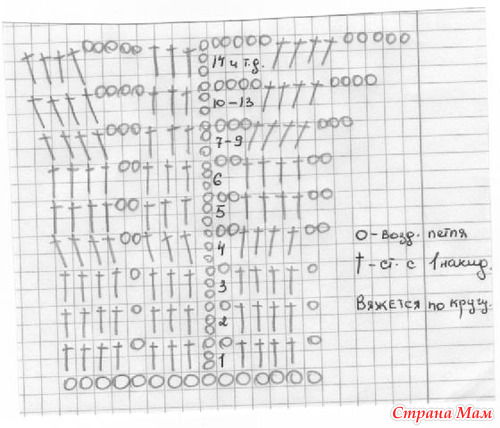 14 и т.д.
10-13
7-9
6
5
4
3
2
1
О-возд. петля
†-ст. с 1 накид.
Вяжется по кругу.
Страна Мам